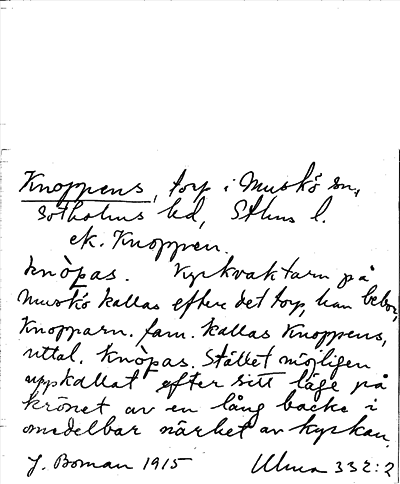 Knoppens, torp i Muskö sn,
Sotholms hd, Sthms l.
ek. Knoppen.
knòpas. Kyrkvaktarn på
Muskö kallas efter det torp, han bebor,
Knopparn. fam. kallas Knoppens,
uttal. knòpas. Stället möjligen
uppkallat efter sitt läge på
krönet av en lång backe i
omedelbar närhet av kyrkan.
J. Boman 1915 Ulma 332:2